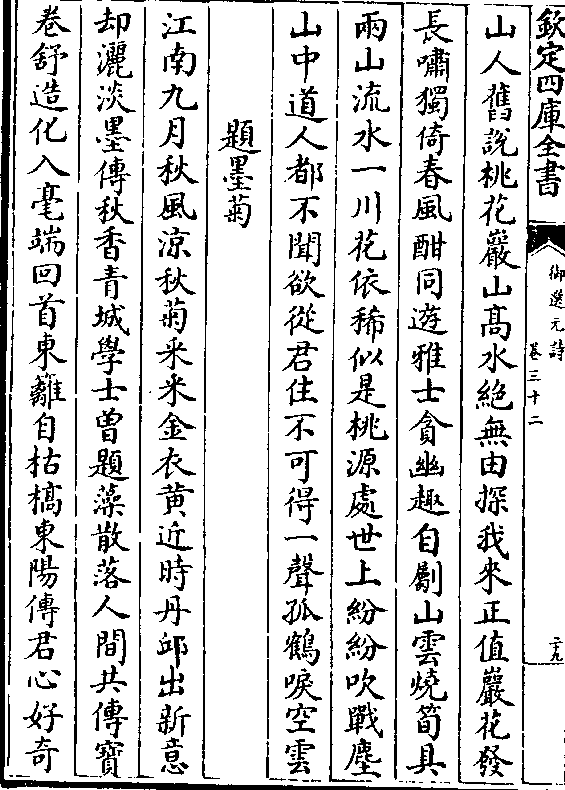 欽定四庫全書
御選元詩
卷三十二
二十九
山人舊說桃花巖山高水絶無由探我來正值巖花發
長嘯獨倚春風酣同遊雅士貪幽趣自劚山雲燒筍具
兩山流水一川花依稀似是桃源處世上紛紛吹戰塵
山中道人都不聞欲從君住不可得一聲孤鶴唳空雲
題墨菊
江南九月秋風涼秋菊采采金衣黄近時丹邱出新意
却灑淡墨傳秋香青城學士曽題藻散落人間共傳寳
卷舒造化入毫端回首東籬自枯槁東陽傅君心好奇